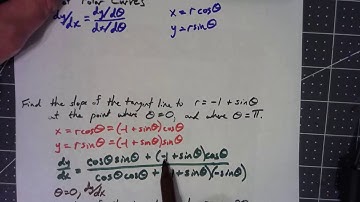 of Polar Curves
dy/dx = dy/dθ / dx/dθ x = r cosθ
y = r sinθ
Find the slope of the tangent line to r = -1 + sinθ
at the point where θ = 0, and where θ = π.
x = r cosθ = (-1 + sinθ) cosθ
y = r sinθ = (-1 + sinθ) sinθ
dy/dx = cosθ sinθ + (-1 + sinθ) cosθ / cosθ cosθ + 1 + sinθ)(-sinθ)
θ = 0, dy/dx